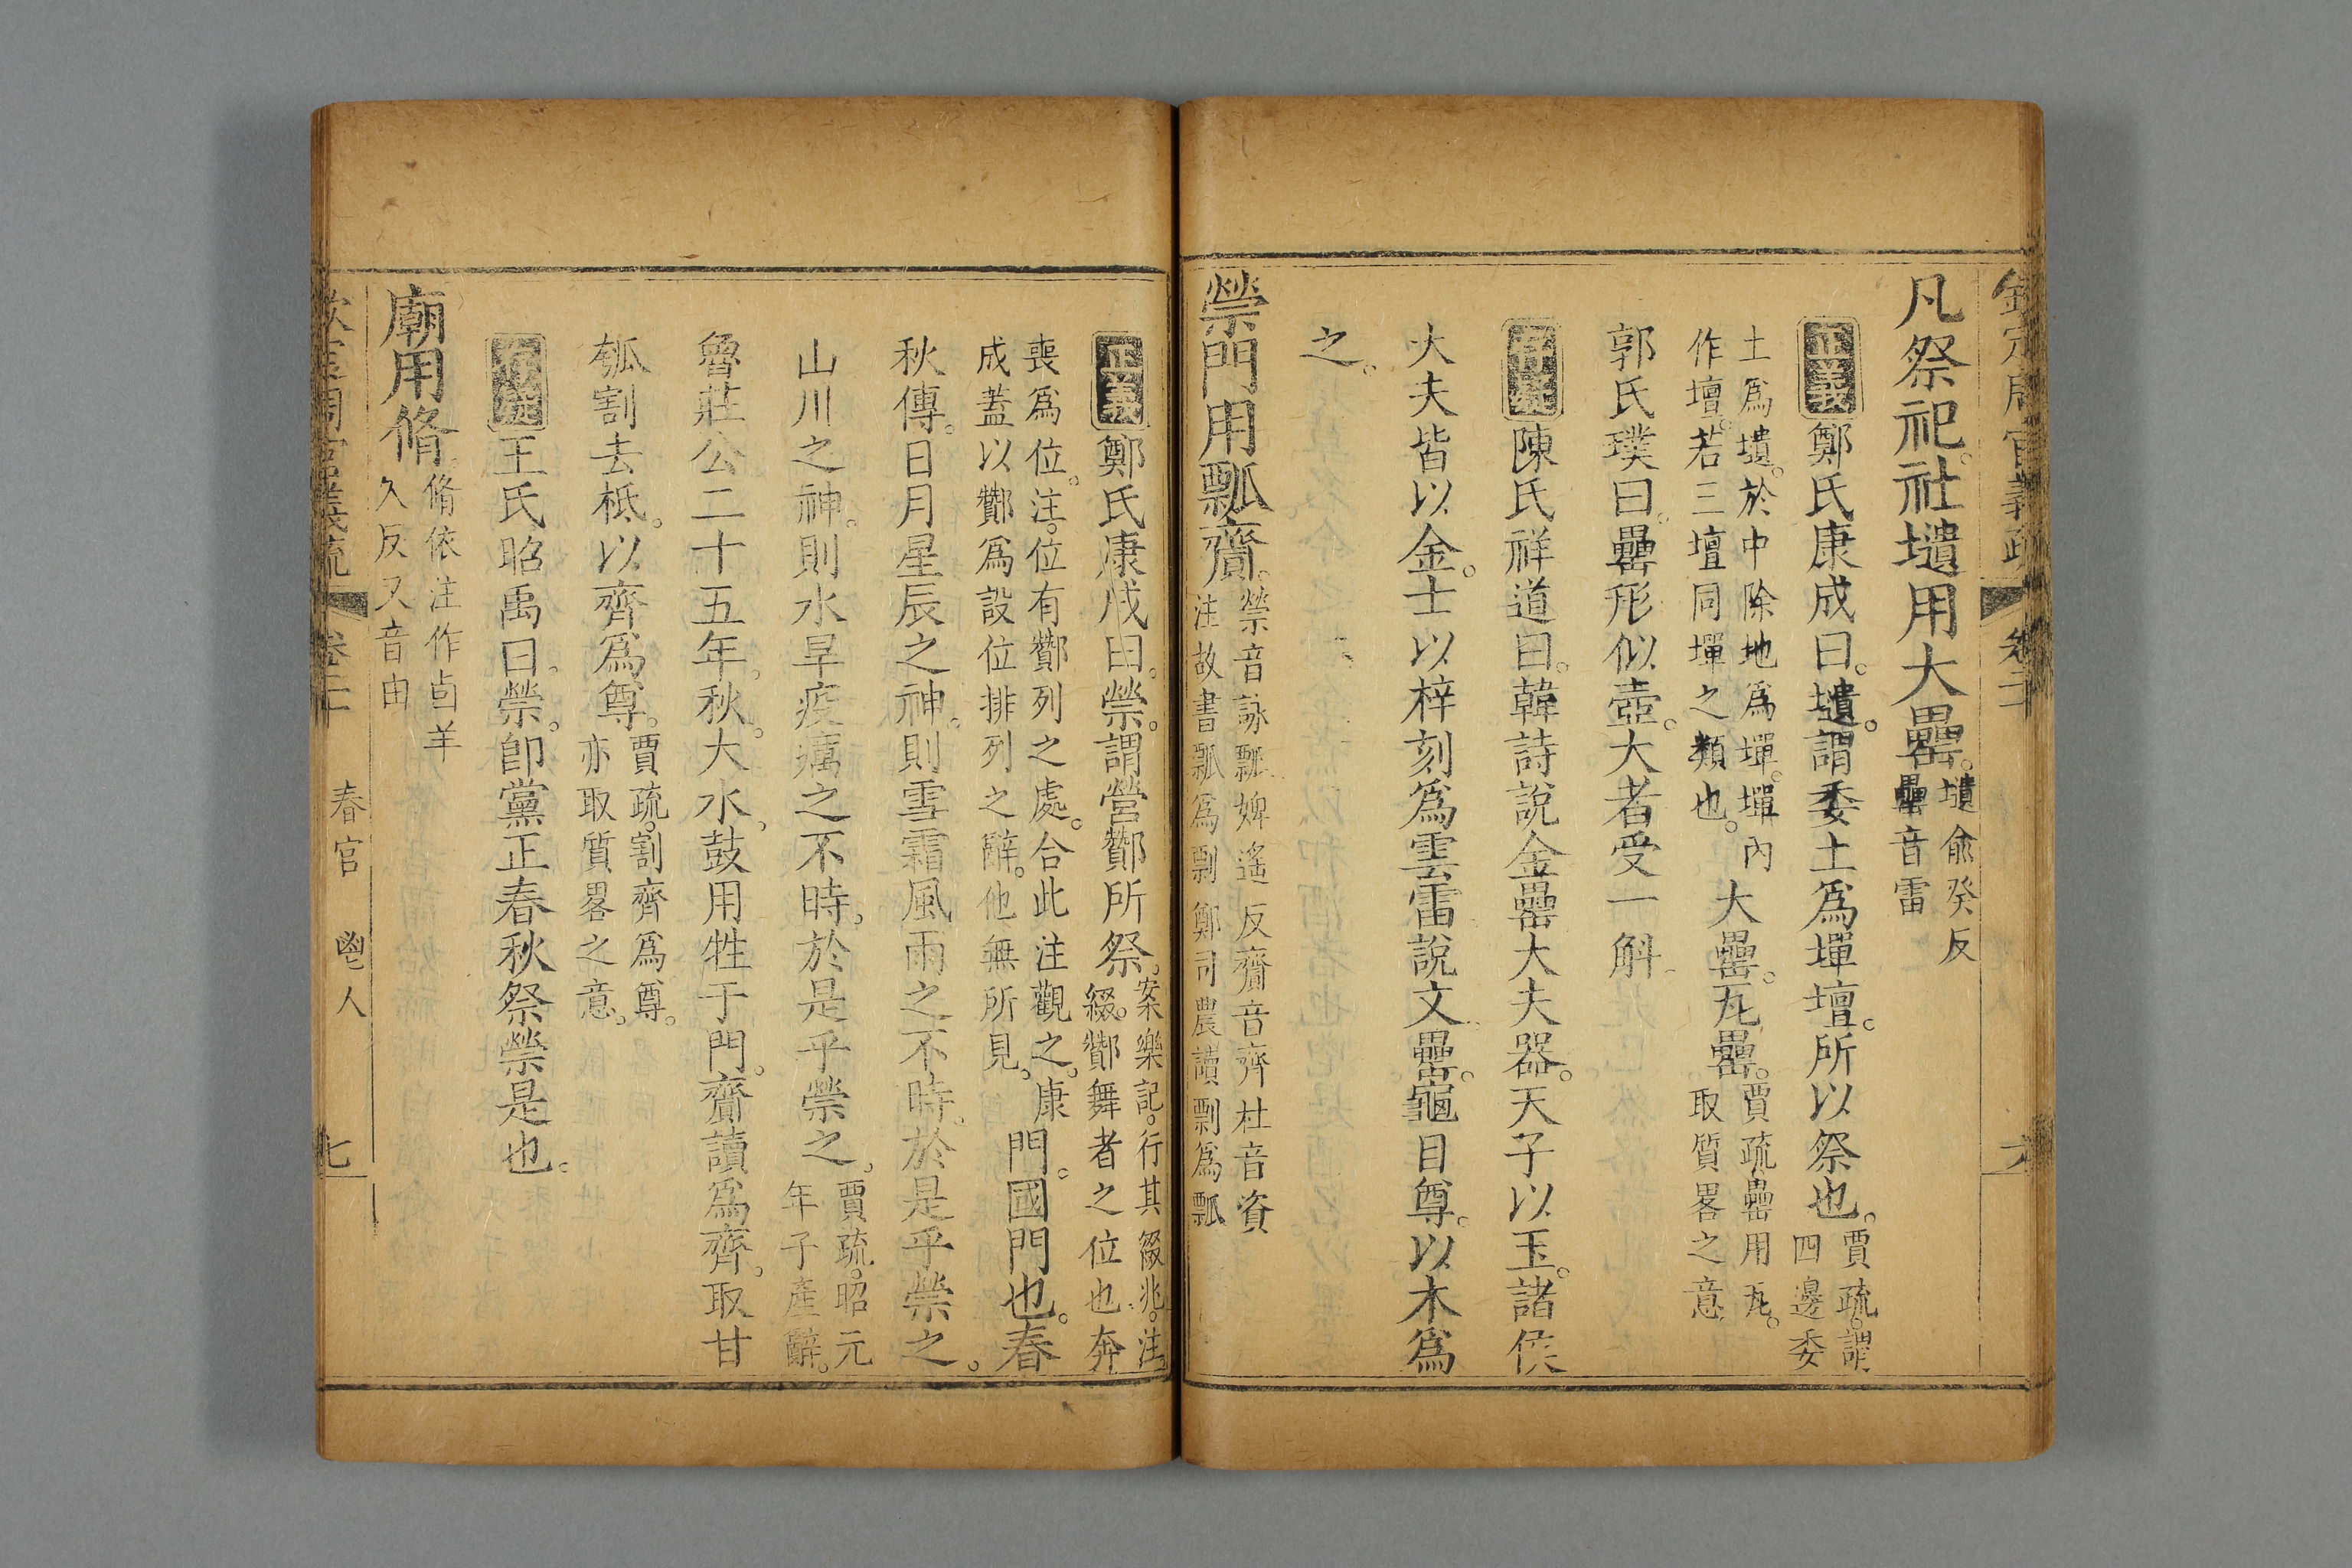 欽定周官義疏 卷二 六
凡祭祀。社壝用大罍。壝俞癸反
罍音雷
正義鄭氏康成曰。壝。謂委土爲墠壇。所以祭也。賈疏。謂四邊委
土爲壝。於中除地爲墠。墠內
作壇。若三壇同墠之類也。大罍。瓦罍。賈疏罍用瓦。取質畧之意
郭氏璞曰。罍形似壺。大者受一斛
存疑陳氏祥道曰。韓詩說金罍大夫器。天子以玉。諸侯
大夫皆以金。士以梓刻爲雲雷說文罍。龜目尊。以木爲
之。
禜門用瓢齎。禜音詠瓢婢遙反齎音齊杜音資
注故書瓢爲剽鄭司農讀剽爲瓢
正義鄭氏康成曰。禜。謂營酇所祭。案樂記。行其綴兆。注。綴。酇舞者之位也奔
喪爲位。注。位有酇列之處。合此注觀之。康
成蓋以酇爲設位排列之辭。他無所見。門。國門也。春
秋傳。日月星辰之神。則雪霜風雨之不時。於是乎禜之。
山川之神。則水旱疫癘之不時。於是乎禜之。賈疏。昭元年子產辭。
魯莊公二十五年。秋。大水。鼓用牲于門。齎讀爲齊。取甘
瓠割去柢。以齊爲尊。賈疏。割齊爲尊。亦取質畧之意。
王氏昭禹曰。禜。卽黨正春秋祭禜是也。
廟用脩脩依注作卣羊
久反又音由
欽定周官義疏 卷二 春官 鬯人 七